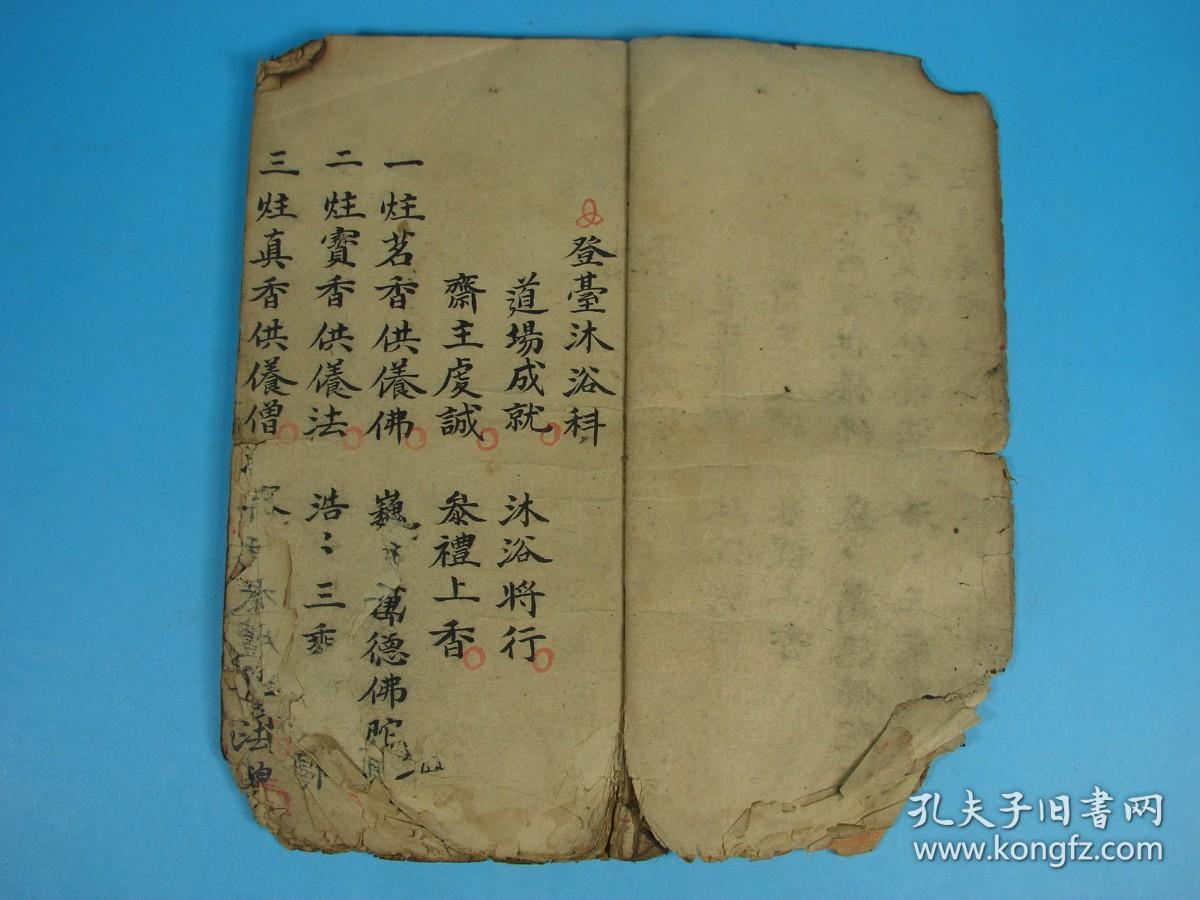 登臺沐浴科
道場成就 沐浴将行
齋主虔誠 叅禮上香
一炷茗香供儀佛 巍 萬德佛陀
二炷寳香供儀法 浩〻三乘
三炷真香供儀僧 法
孔夫子旧书网
www.kongfz.com